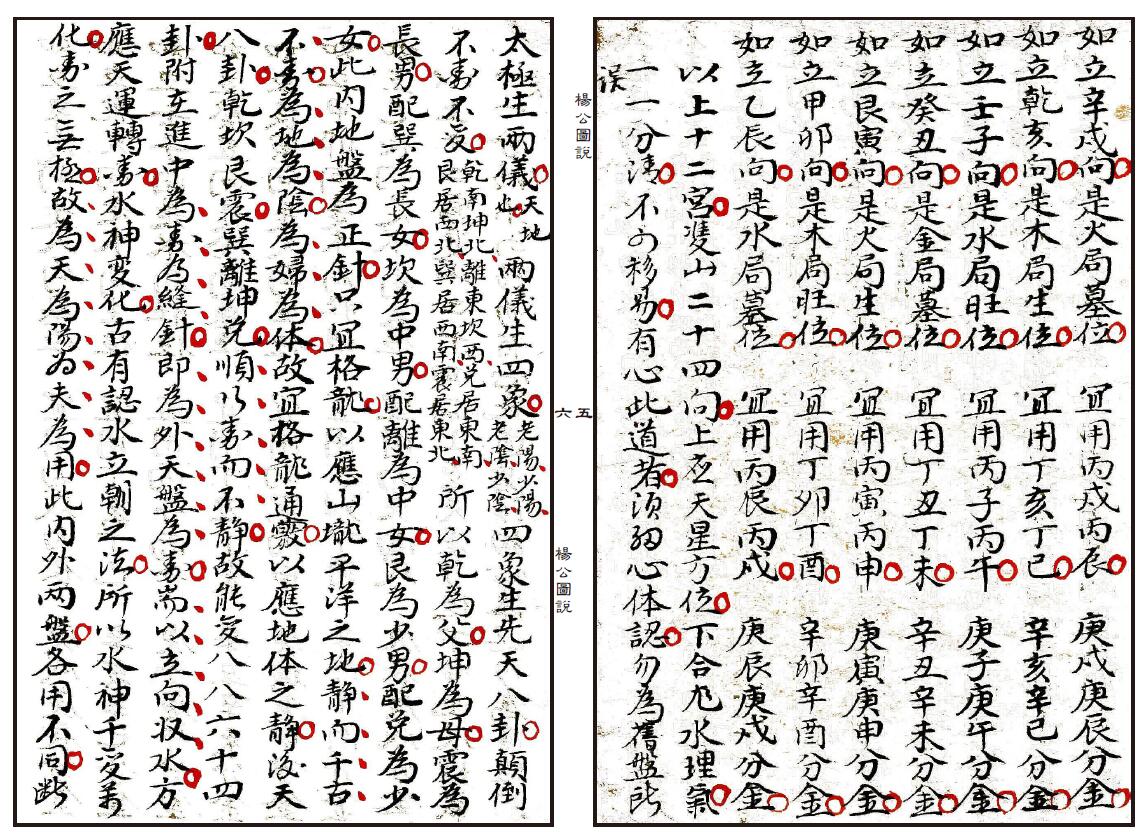 如立辛戌向是火局墓位 宜用丙戌丙辰 庚戌庚辰分金
如立乾亥向是木局生位 宜用丁亥丁巳 辛亥辛巳分金
如立壬子向是水局旺位 宜用丙子丙午 庚子庚午分金
如立癸丑向是金局墓位 宜用丁丑丁未 辛丑辛未分金
如立艮寅向是火局生位 宜用丙寅丙申 庚寅庚申分金
如立甲卯向是木局旺位 宜用丁卯丁酉 辛卯辛酉分金
如立乙辰向是水局墓位 宜用丙辰丙戌 庚辰庚戌分金
以上十二宮雙山二十四向上应天星方位下合九水理氣
一一分清不可移易有心此道者須細心体認勿為舊盤所
误
楊公圖說
五
六
楊公圖說
太極生兩儀天地也兩儀生四象老陽少陽老陰少陰四象生先天八卦顛倒
不動不变乾南坤北離東坎西兌居東南艮居西北巽居西南震居東北所以乾為父坤為母震為
長男配巽為長女坎為中男配離為中女艮為少男配兌為少
女此内地盤為正針只宜格龍以應山壠平洋之地静而千古
不動為地為陰為婦為体故宜格龍通竅以應地体之静後天
八卦乾坎艮震巽離坤兌順以動而不静故能变八八六十四
卦附在進中為動為縫針即為外天盤為動耑以立向収水方
應天運轉動水神变化古有認水立朝之法所以水神千变萬
化動之無極故為天為陽为夫為用此内外两盤各用不同断